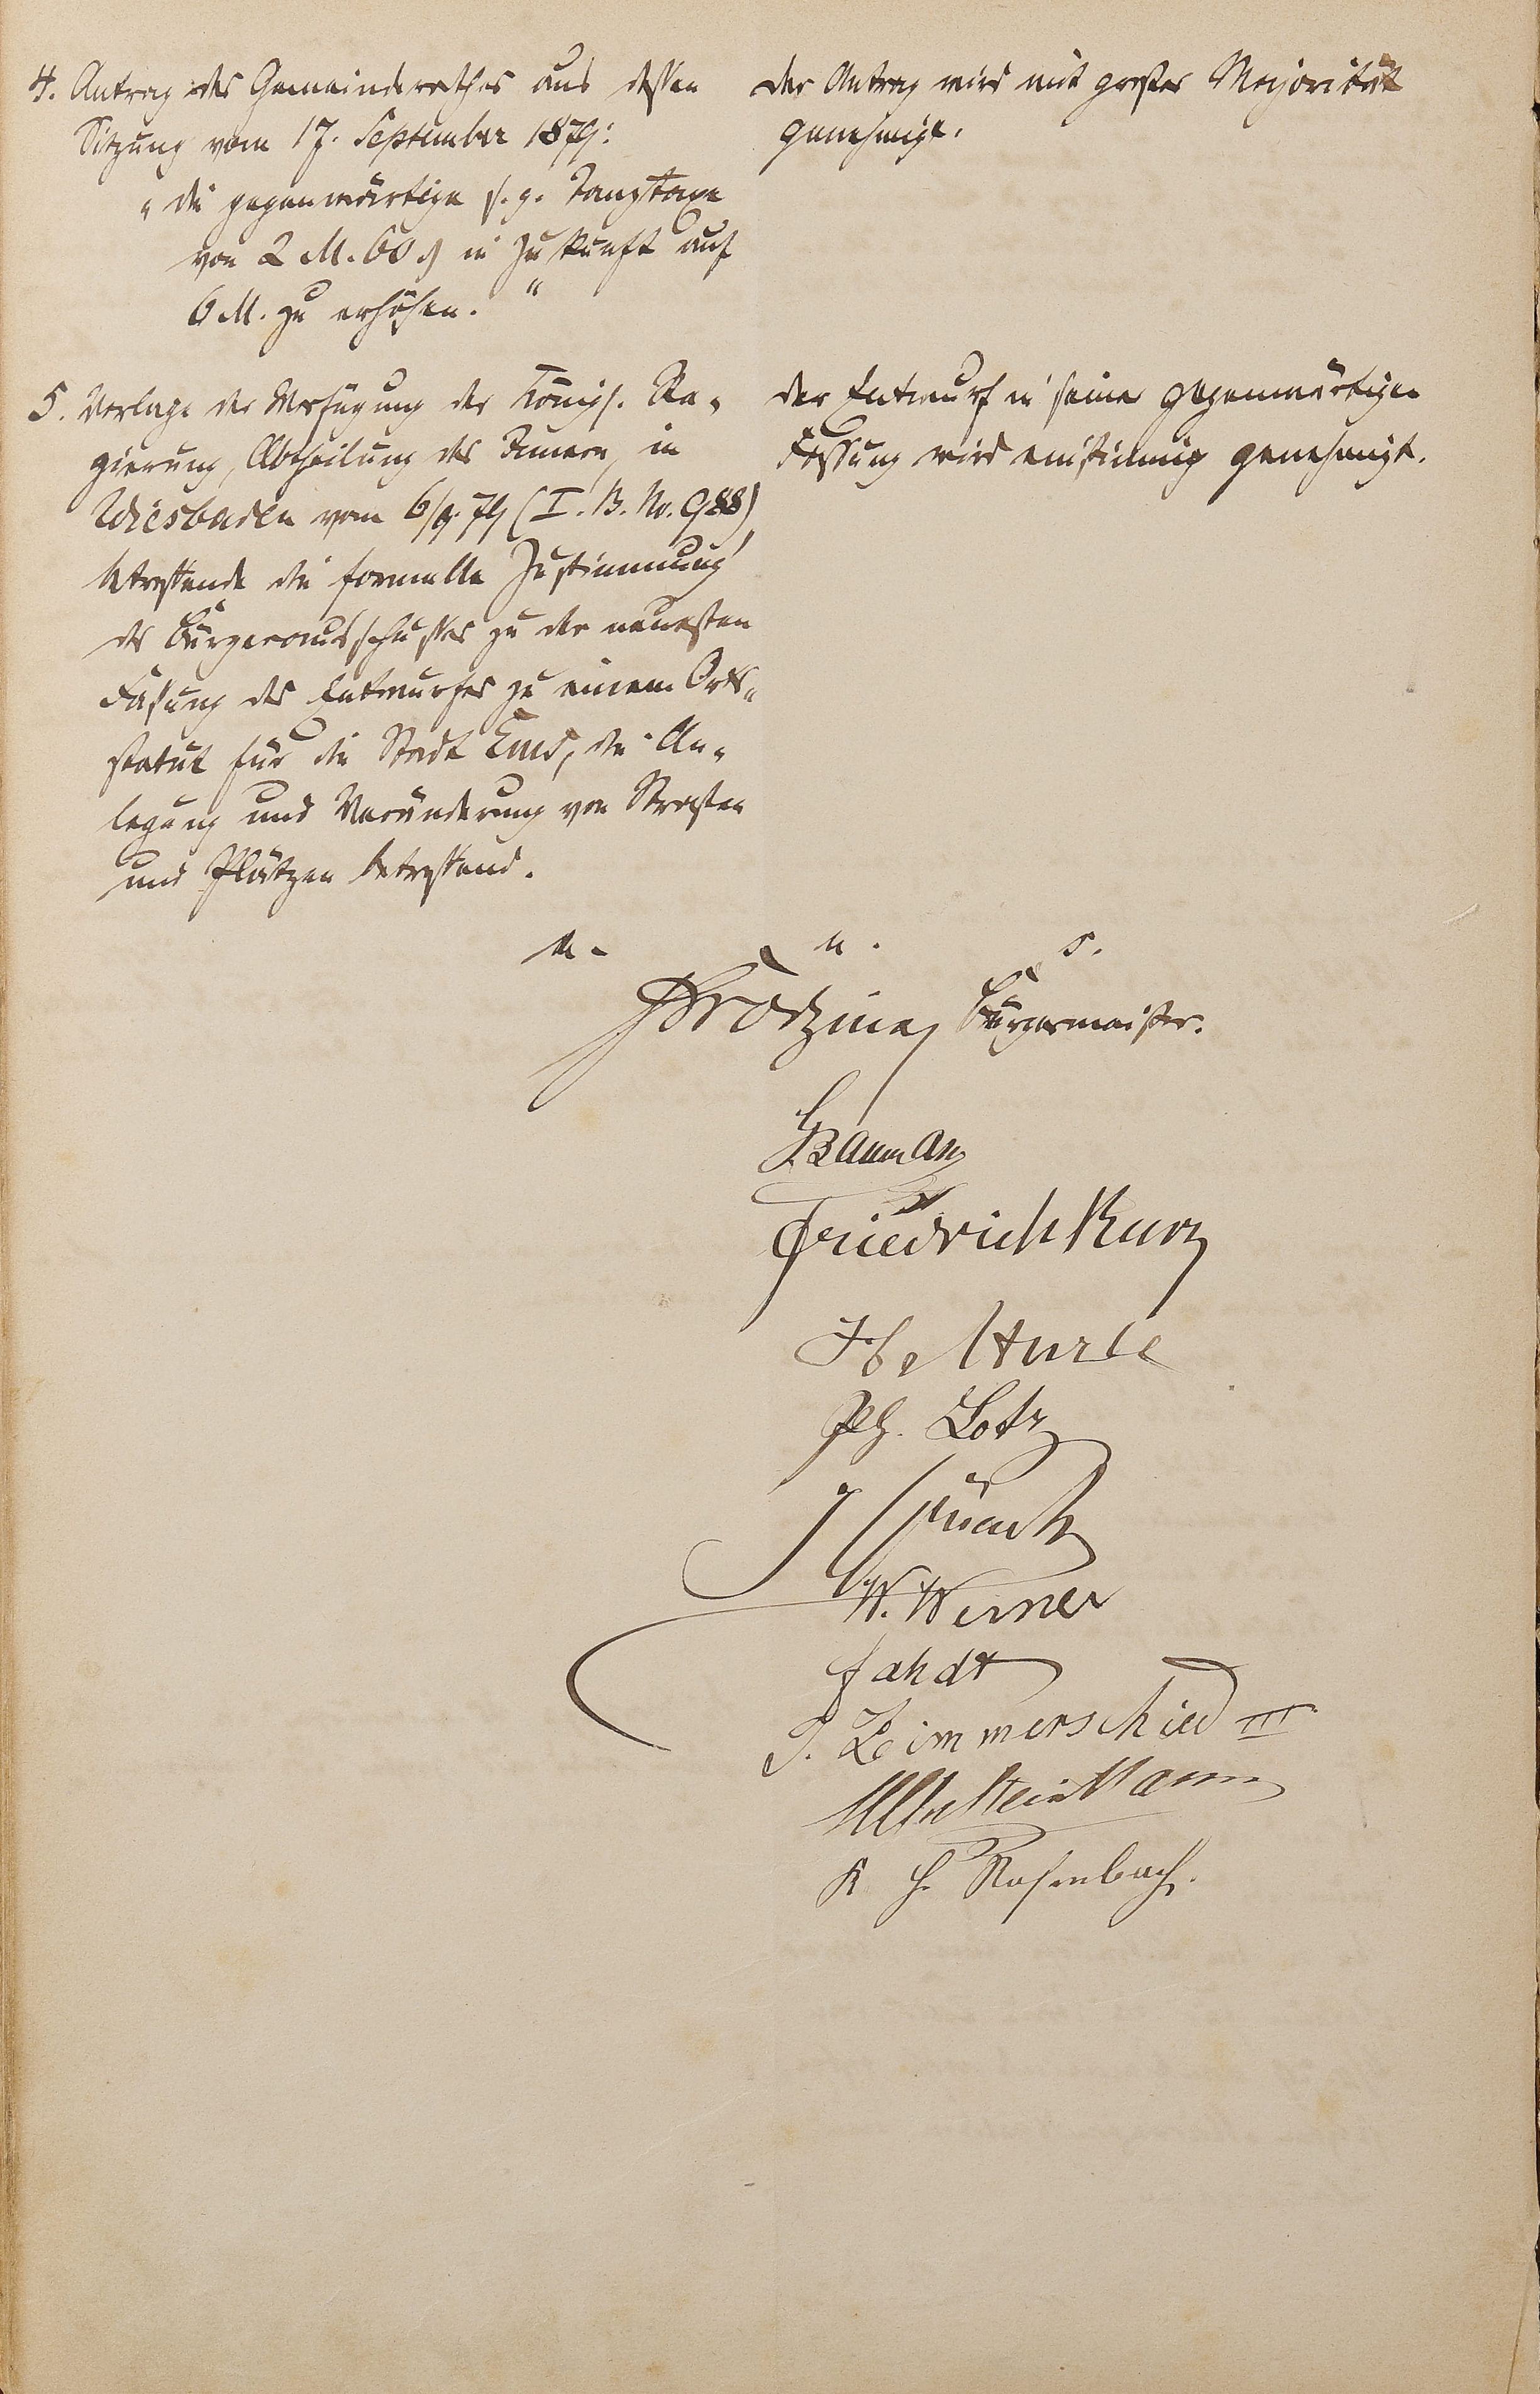 4. Antrag des Gemeinderathes aus dessen
Sitzung vom 17. September 1879:
"die gegenwärtige s. g. Tanztaxe
von 2 M. 60 ₰ in Zukunft auf
6 M. zu erhöhen."
der Antrag wird mit großer Majorität
genehmigt.
5. Vorlage der Verfügung der Königl. Re„
gierung, Abtheilung des Innern, in
Wiesbaden vom 6/9. 79 (I. B. No. 988),
betreffende die formelle Zustimmung
des Bürgerausschusses zu der neuesten
Fassung des Entwurfes zu einem Orts„
statut für die Stadt Ems, die An„
legung und Veränderung von Straßen
und Plätzen betreffend.
der Entwurf in seiner gegenwärtigen
Fassung wird einstimmig genehmigt.
v. u. s.
Bürgermeister.
Baumann
Friedrich Kurz
Ph. Lotz
J
W. Werner
Fahdt
P. Zimmerschied III
K H. Rosenbach.